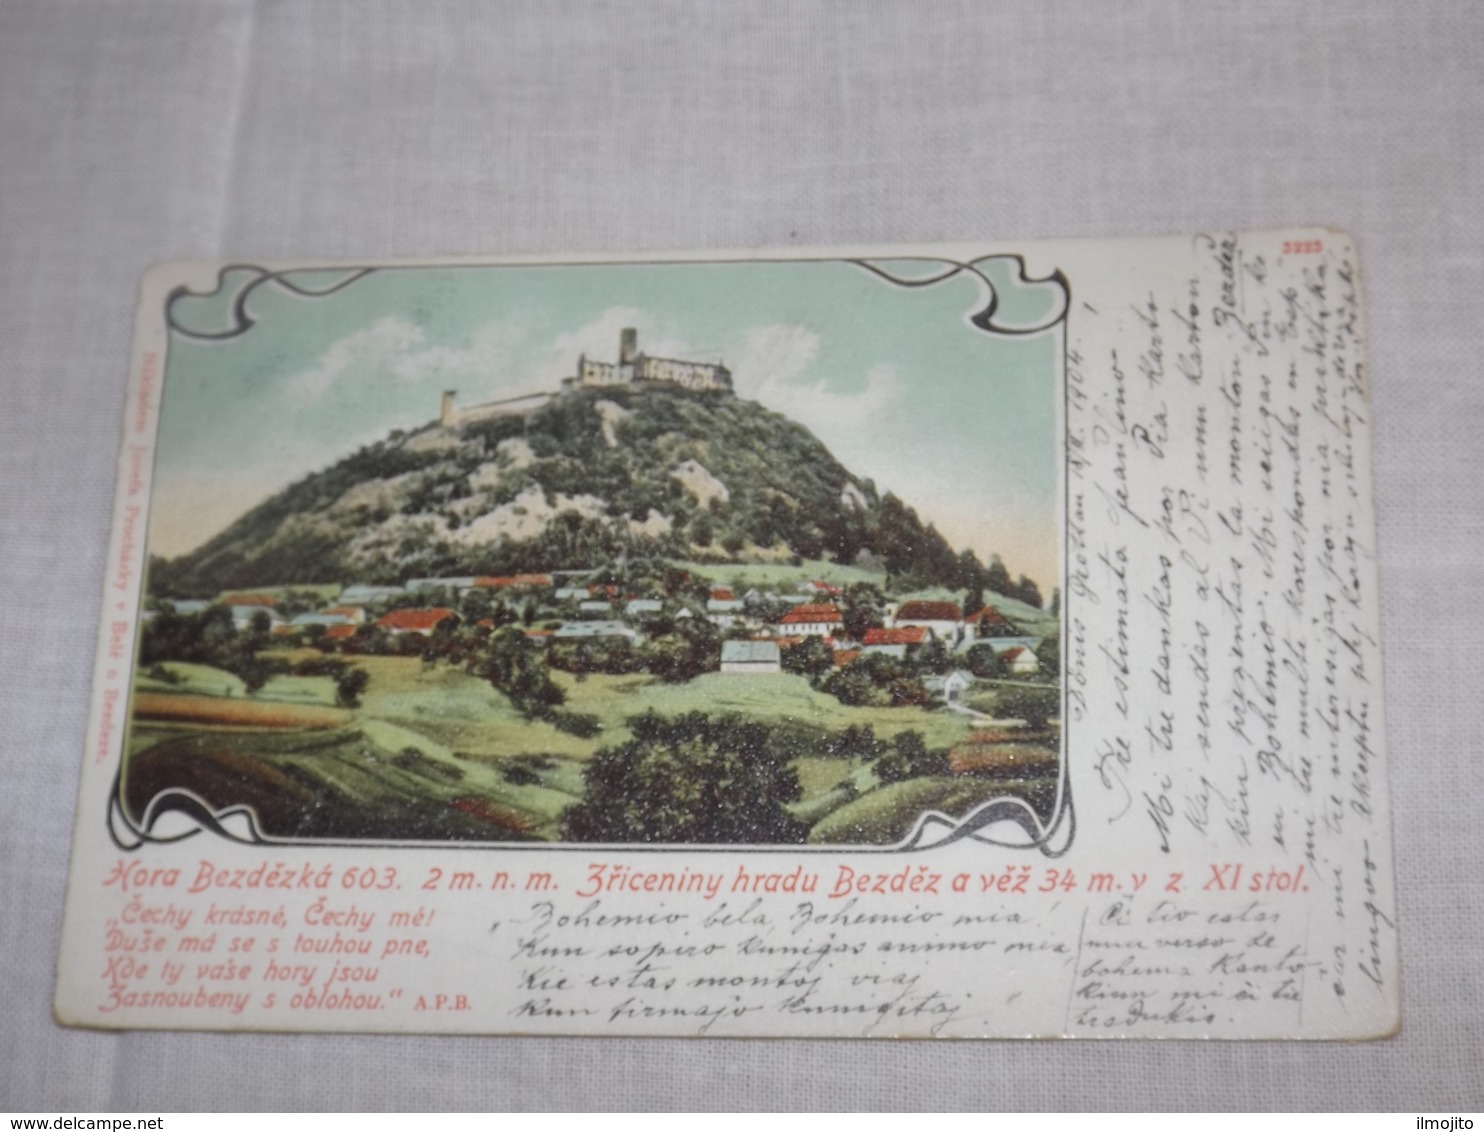 3225
Nákladem Josefa Procházky v Bělé u Bezdeze.
Hora Bezdězká 603. 2 m. n. m. Zříceniny hradu Bezděz a věž 34 m. v z XI stol.
„Čechy krásné, Čechy mé!
Duše má se s touhou pne,
Kde ty vaše hory jsou
Zasnoubeny s oblohou.“ A.P.B.
„Bohemio bela, Bohemio mia!
Kun sopiro kuniĝas animo mia,
Kie estas montoj viaj
Kun firmajo kuniĝitaj.“
Ĉi tio estas
unu verso de
bohema Kanto
kiun mi ĉi tie
tradukis.
1904.!
Tre estimata fraulino
Mi tre dankas por Via karto
kaj sendas al Vi unu karton
kiu prezentas la monton Bezdez
en Bohemio. Mi sciigas Vin ke
mi tre multe korespondas en Esp.
ĉar mi tre interesiĝas por nia
lingvo. Akceptu
ilmojito